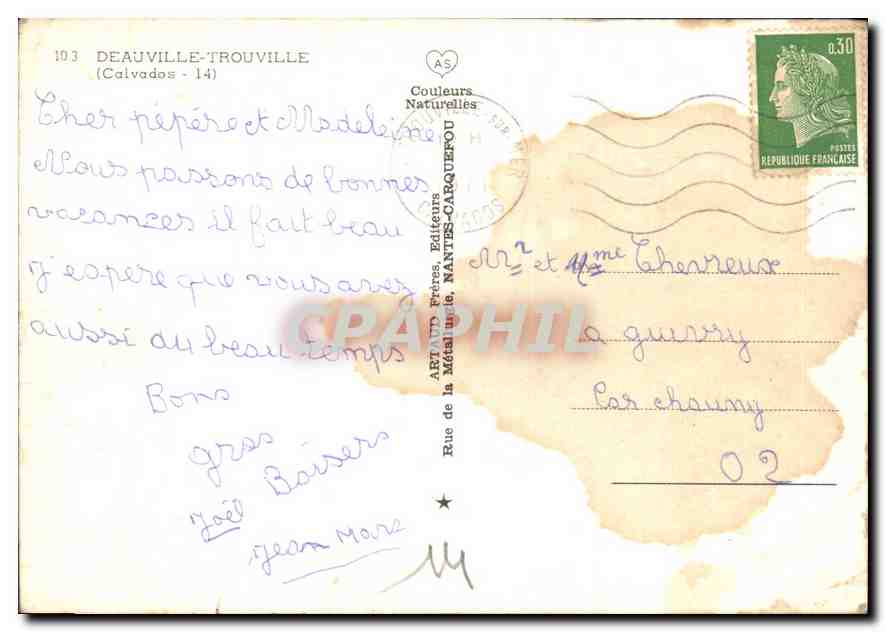 103 DEAUVILLE-TROUVILLE
(Calvados - 14)
Cher pépère et Madeleine
Nous passons de bonnes
vacances il fait beau
J'espere que vous avez
aussi du beau temps
Bons
gros
Baisers
Joël
Jean Marc
AS
Couleurs
Naturelles
ARTAUD Frères, Editeurs
Rue de la Métallurgie, NANTES-CARQUEFOU
TROUVILLE-SUR-MER
CALVADOS
0,30
POSTES
REPUBLIQUE FRANÇAISE
Mr et Mme Thevreux
a guivry
Par chauny
02
CPAPHIL